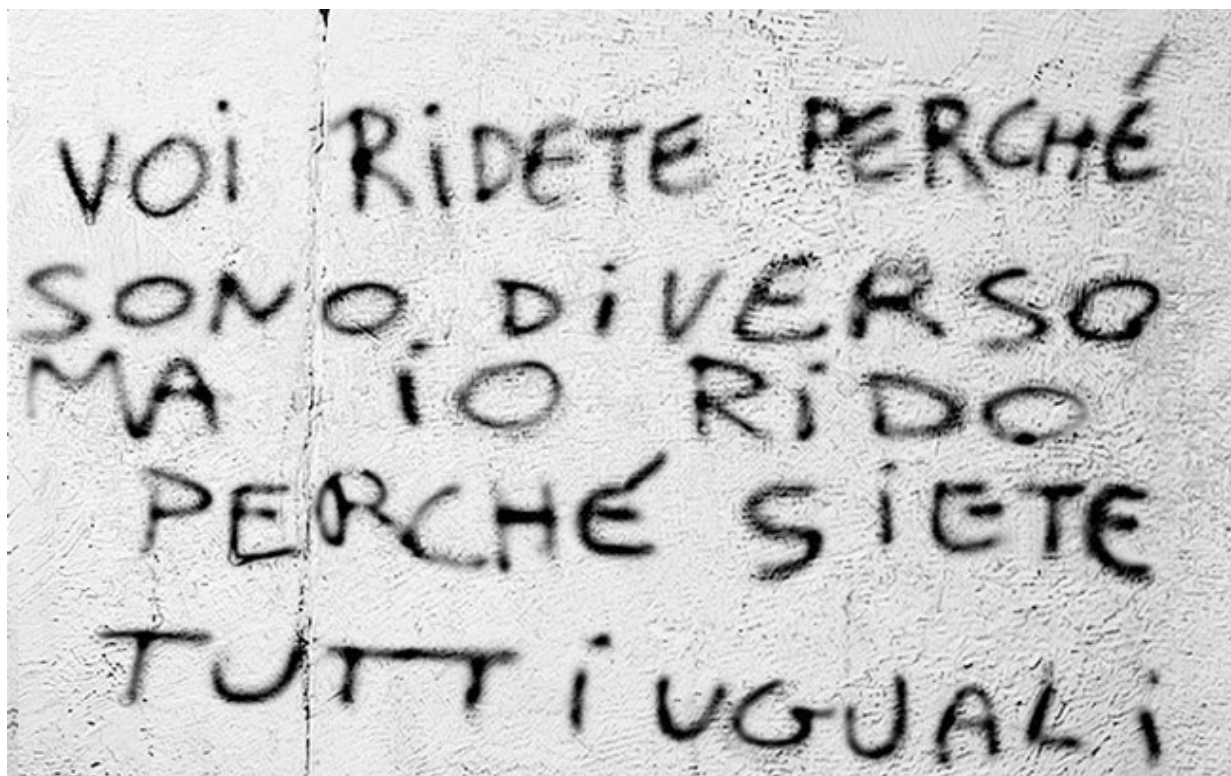 VOi RiDETE PERCHÉ
SONO DiVERSO
MA iO RiDO
PERCHÉ SiETE
TUTTi UGUALi